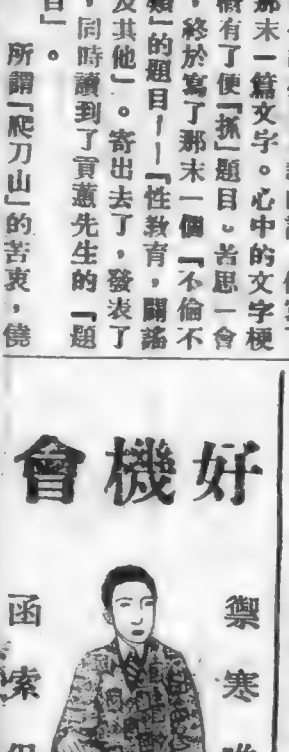 那末一篇文字。心中的文字梗
概有了便『抓』題目。苦思一會
，終於寫了那末一個『不倫不
類』的題目——『性教育，闢謠
及其他』。寄出去了，發表了
，同時讀到了賈蕙先生的『題
目』。
所謂『爬刀山』的苦衷，僥
好機會
禦寒
函索